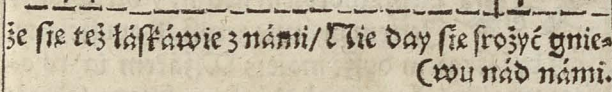 że ſię też łáſkáwie z námi/ Nie day ſię ſrożyć gnie⸗
(wu nád námi.